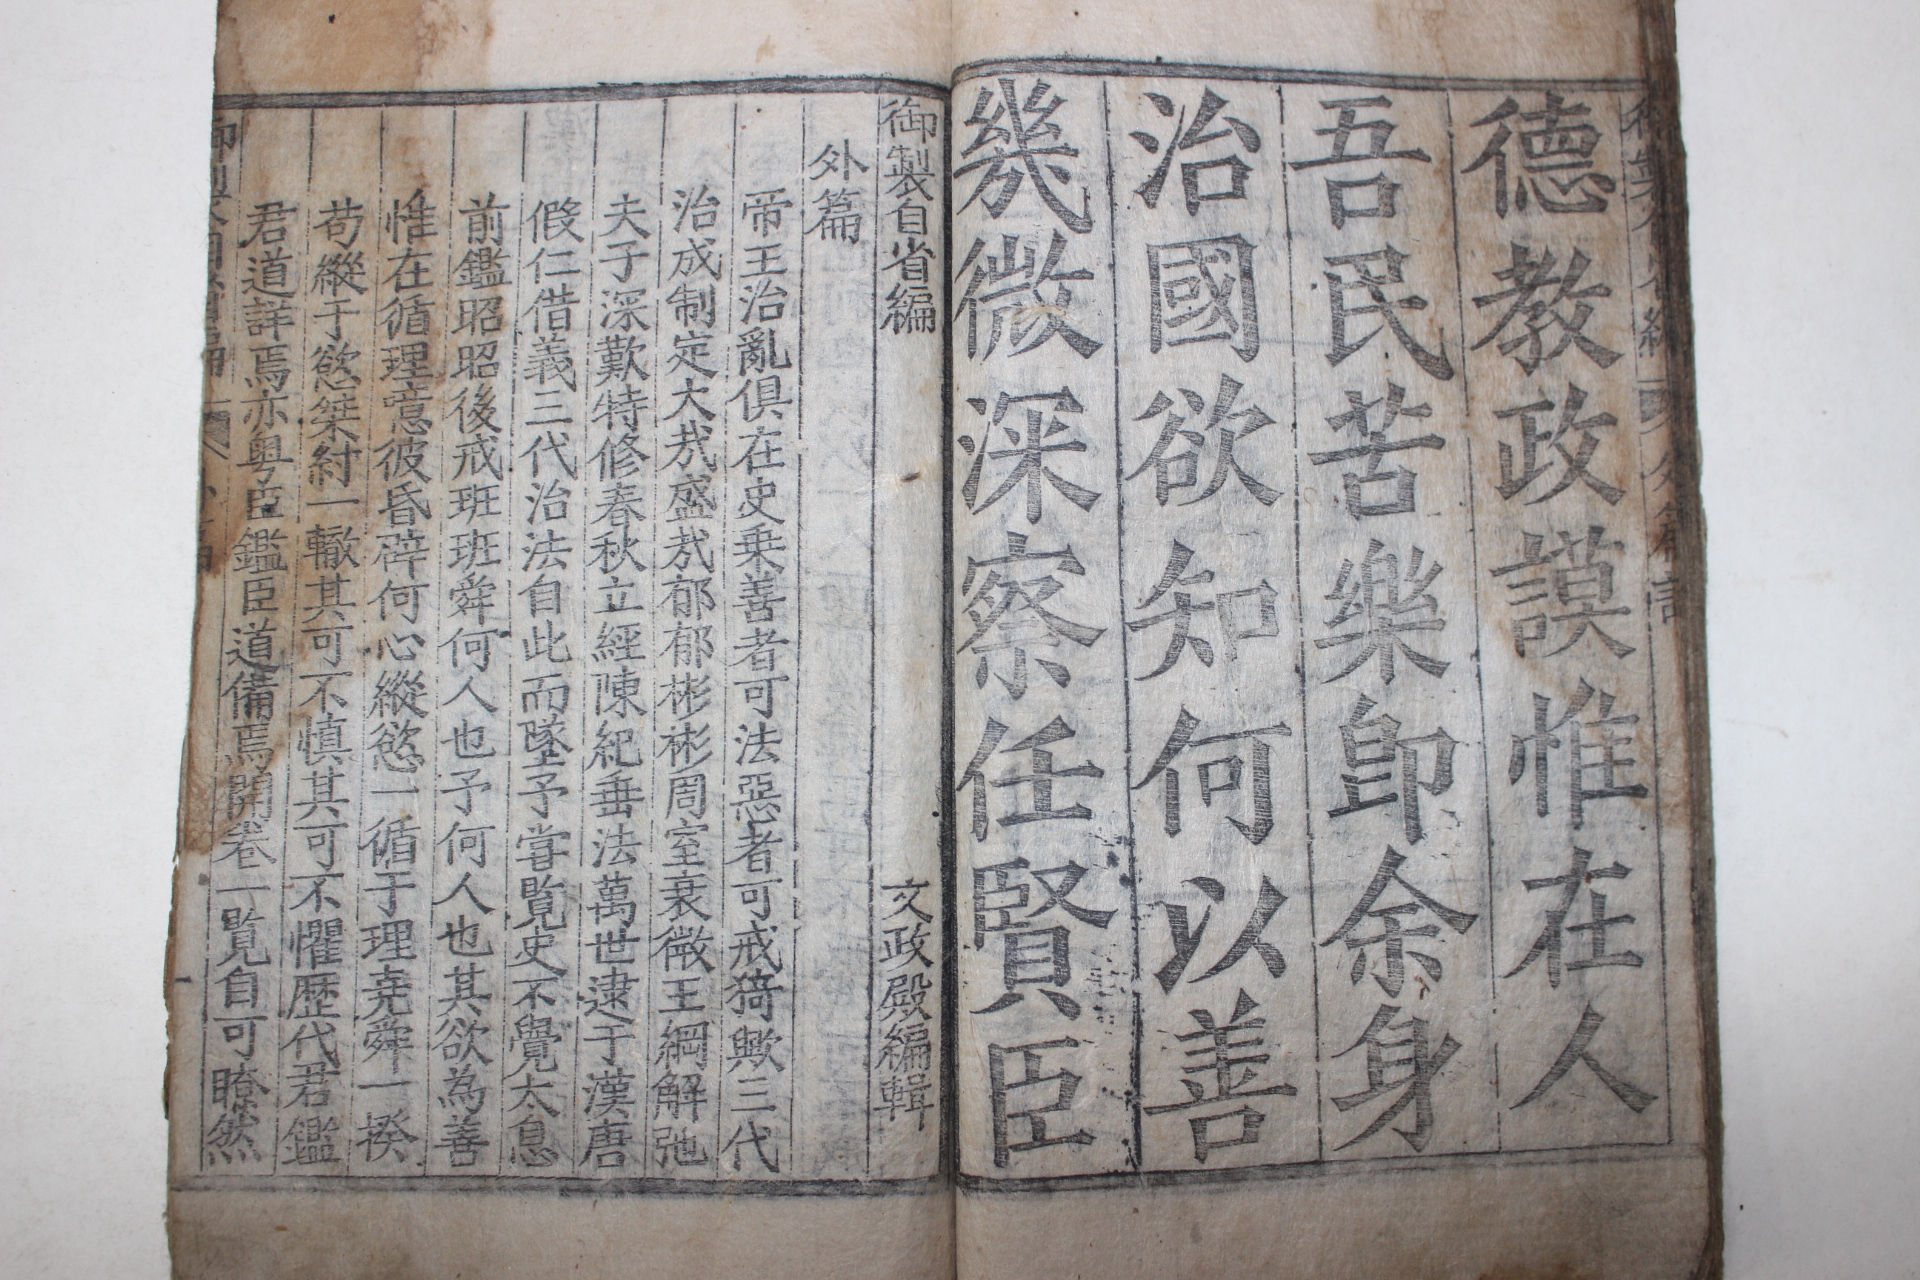 德教政謨惟在人
吾民苦樂卽余身
治國欲知何以善
幾微深察任賢臣
御製自省編
文政殿編輯
外篇
帝王治亂俱在史乗善者可法惡者可戒猗歟三代
治成制定大㢤盛㢤郁郁彬彬周室衰微王綱解弛
夫子深歎特修春秋立經陳紀垂法萬世逮于漢唐
假仁借義三代治法自此而墜予嘗覧史不覺大息
前鑑昭昭後戒班班舜何人也予何人也其欲為善
惟在循理噫彼昏辟何心縱慾一循于理堯舜一揆
苟縱于慾桀紂一轍其可不慎其可不懼歷代君鑑
君道詳焉亦粤臣鑑臣道備焉開卷一覧自可瞭然